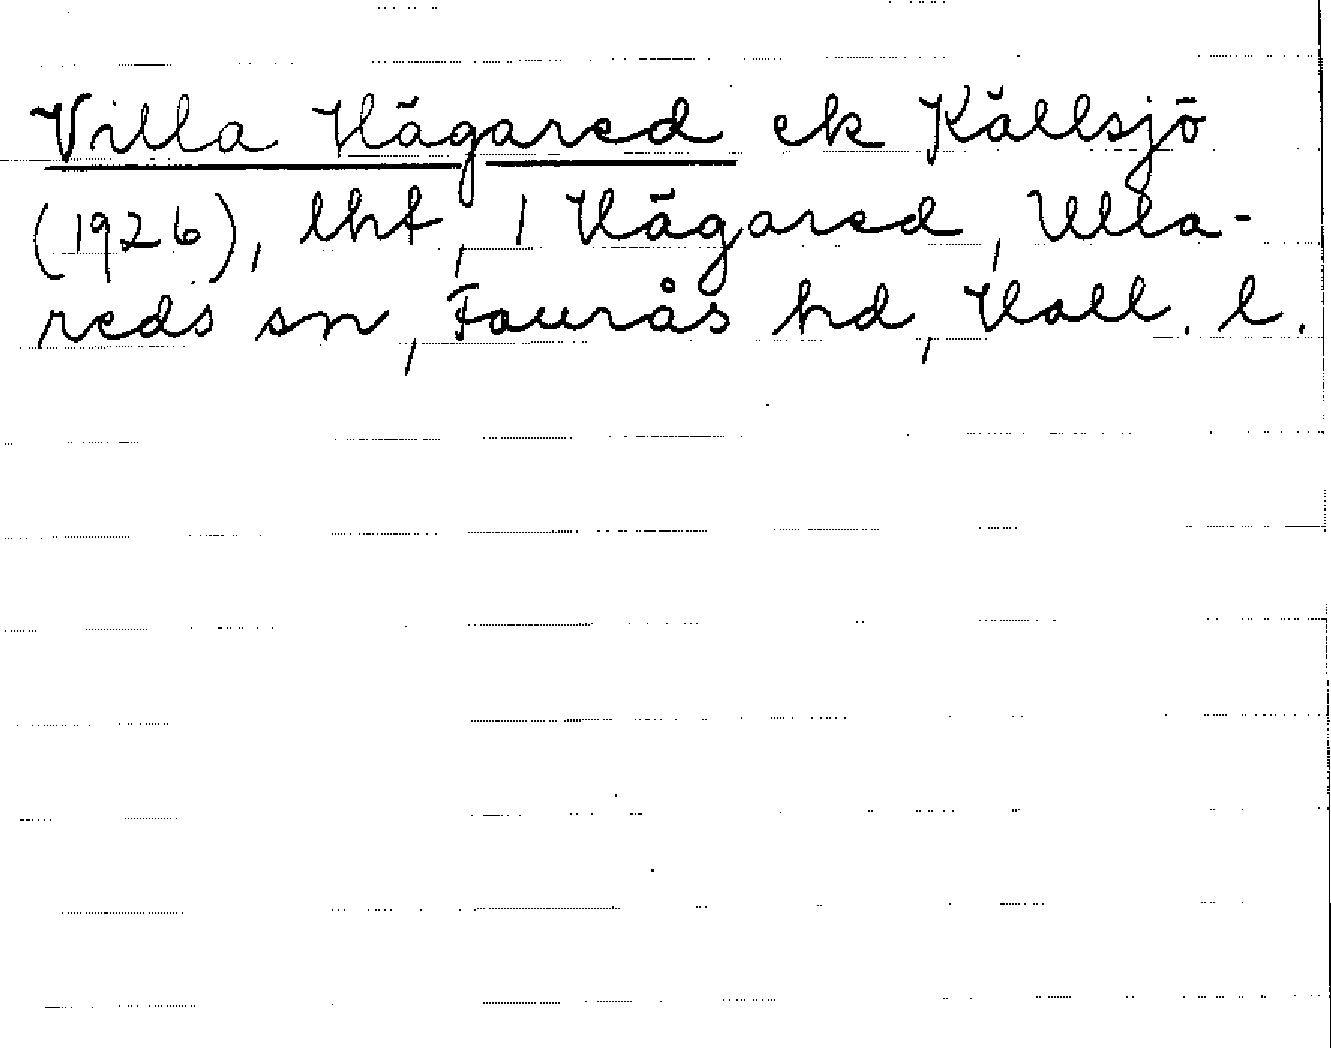 Villa Hägared ek Källsjö
(1926), lht, 1 Hägared, Ulla-
reds sn, Faurås hd, Hall. l.